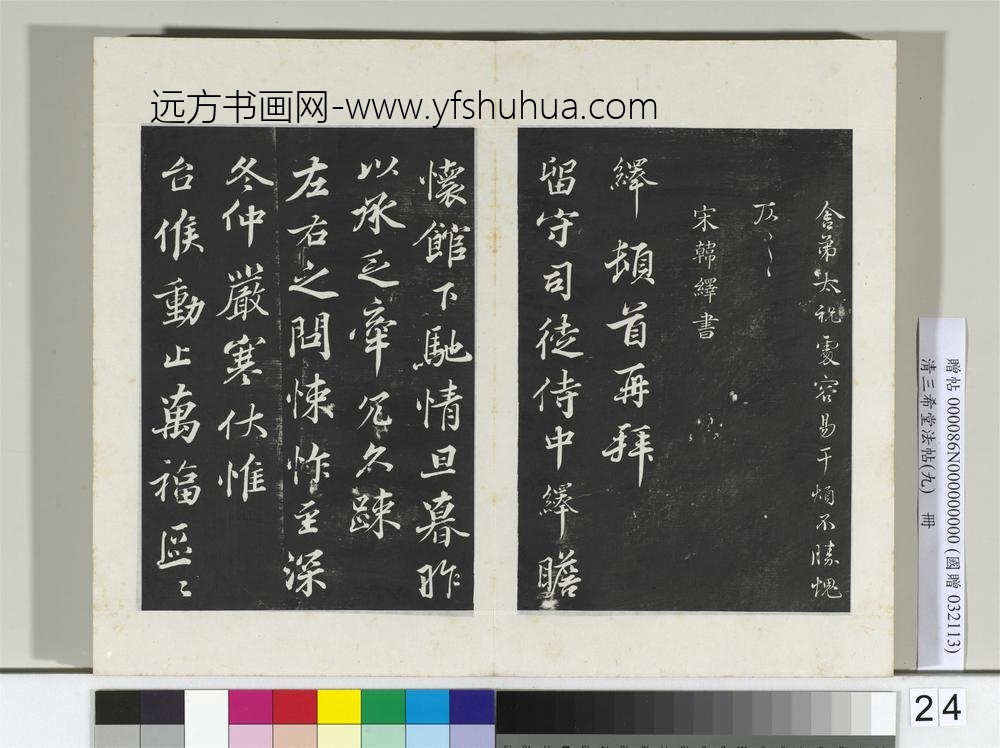 远方书画网-www.yfshuhua.com
舍弟太祝處容易干煩不勝愧
仄〻
宋韓繹書
繹頓首再拜
留守司徒侍中繹瞻
懷館下馳情旦暮昨
以承乏牽冗久踈
左右之問悚怍至深
冬仲嚴寒伏惟
台候動止萬福區〻
贈帖 000086N000000000 (國贈 032113)
清三希堂法帖(九) 冊
24